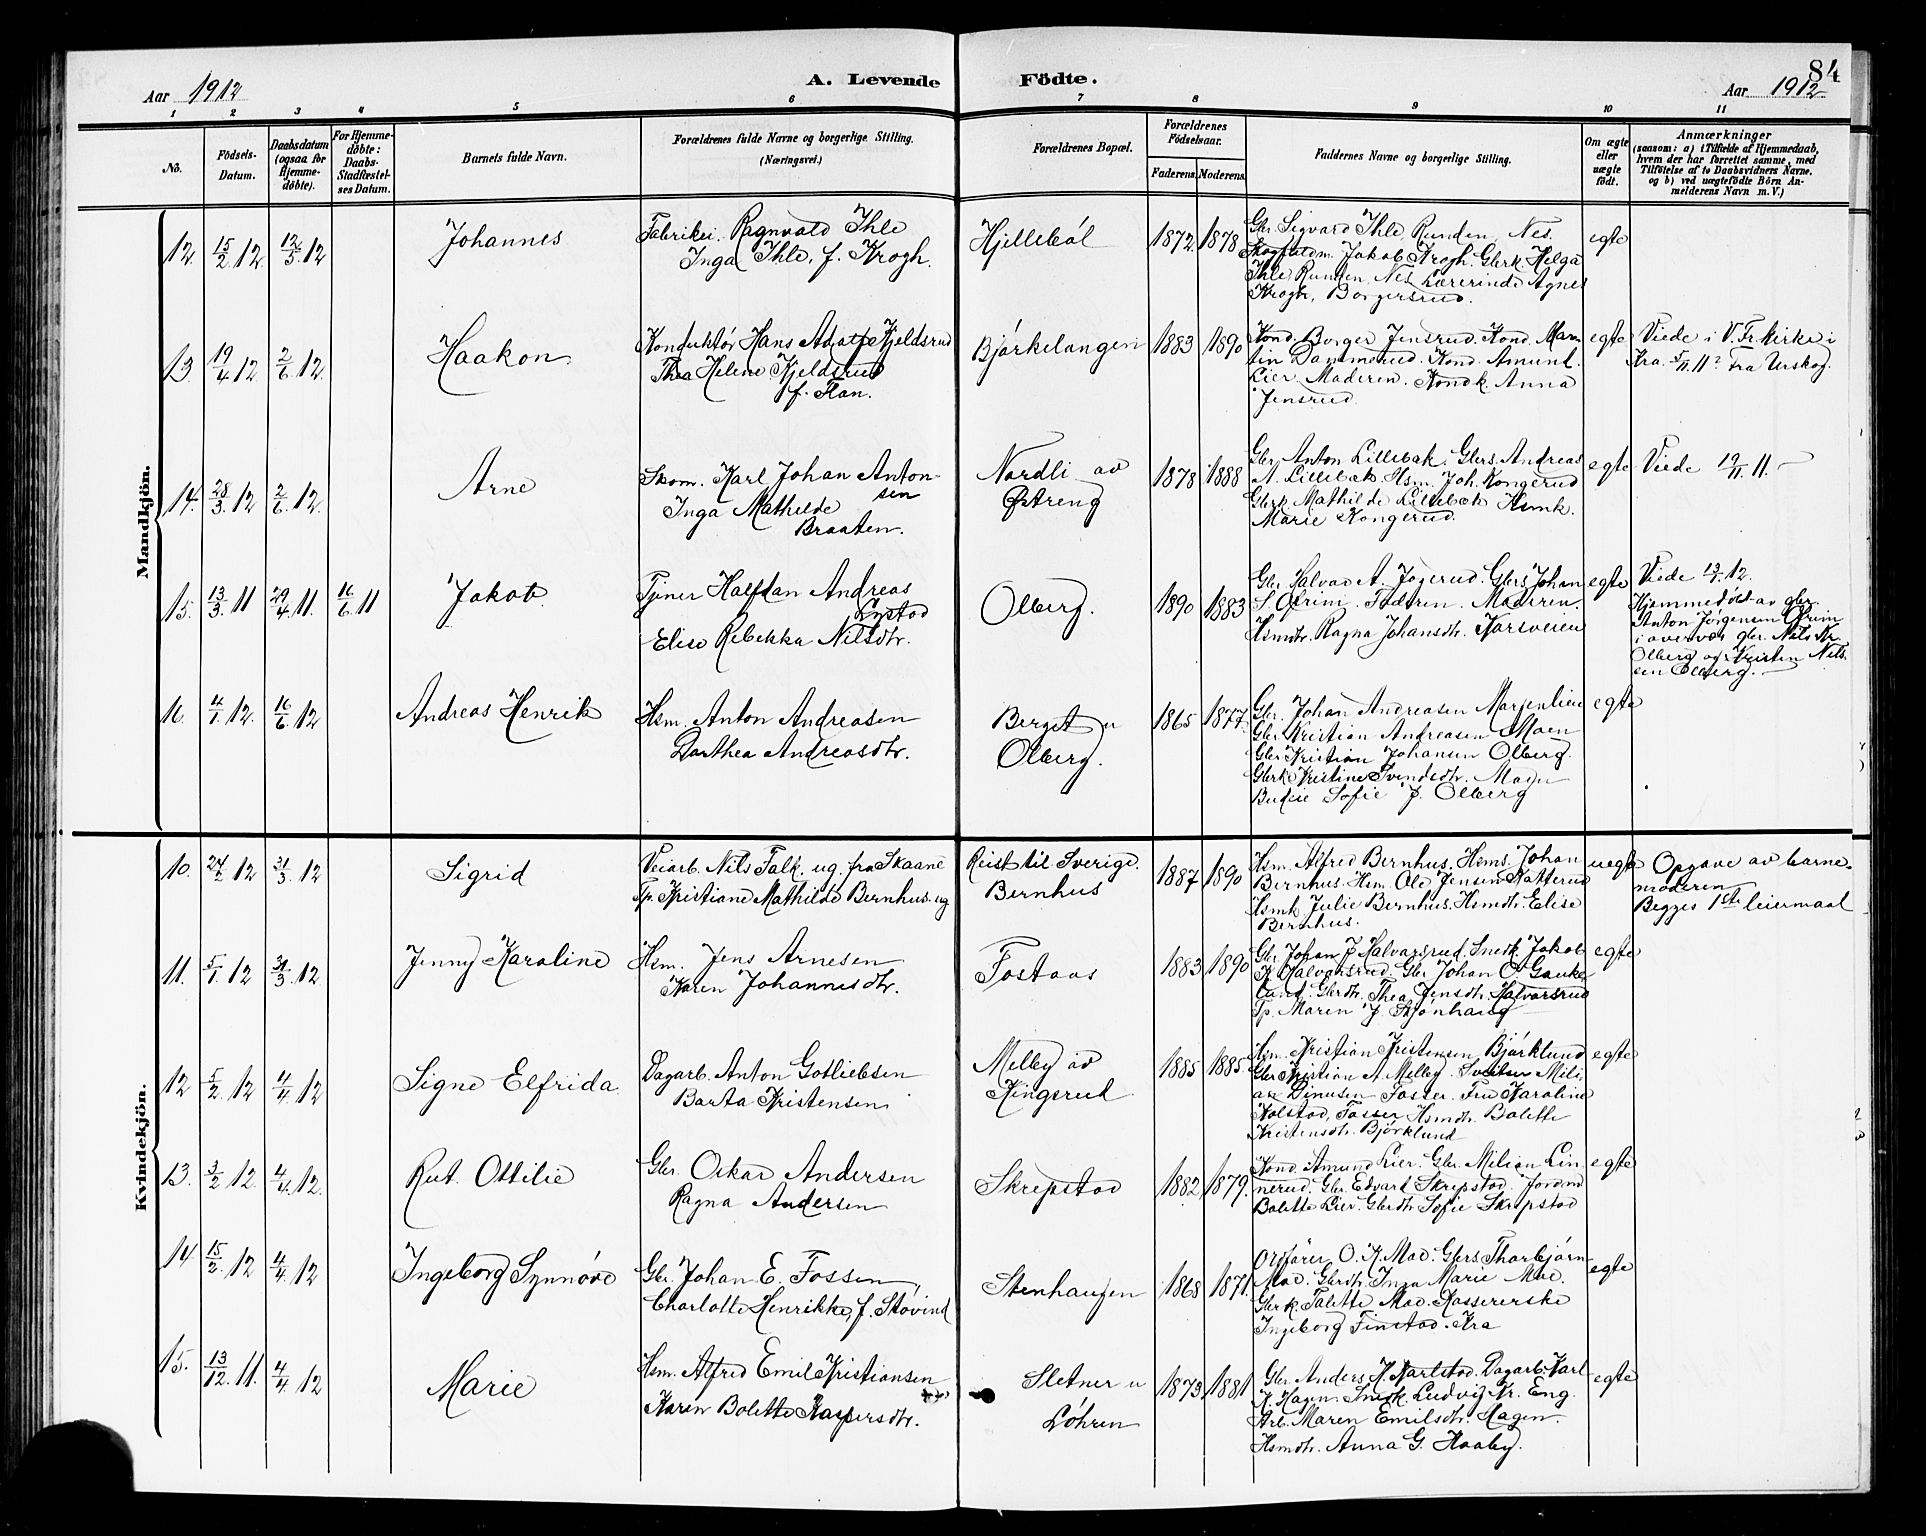 84
Aar 1912
A. Levende Fødte.
Aar 1912
1 2 3 4 5 6 7 8 9 10 11
No.
Födsels-
Datum.
Daabsdatum
(ogsaa for
Hjemme-
döbte).
For Hjemme-
döbte:
Daabs-
Stadfæstel-
ses Datum.
Barnets fulde Navn.
Forældrenes fulde Navne og borgerlige Stilling.
(Næringsvei.)
Forældrenes Bopæl.
Forældrenes
Födselsaar.
Faderens. Moderens.
Faddernes Navne og borgerlige Stilling.
Om ægte
eller
uægte
födt.
Anmærkninger
(saasom: a) i Tilfælde af Hjemmedaab,
hvem der har forrettet samme, med
Tilföielse af to Daabsvidners Navne,
og b) ved uægtefödte Börn An-
melderens Navn m. V.)
Mandkjön.
12. 15/2 12. 12/5 12
Johannes
Fabrikei. Ragnvald Ihle
Inga Ihle, f. Krogh.
Hjellebøl
1872. 1878
Gbr. Sigvard Ihle Runden, Nes.
Skogfuldm. Jakob Krogh. Gbrk. Helga
Ihle Runden, Nes Lærerinde Agnes
Krogh, Borgersrud.
egte
13. 19/4 12 2/6 12.
Haakon
Konduktør Hans Adolf Kjeldsrud
Thea Helene Kjeldsrud
f. Tran.
Bjørkelangen
1883 1890
Kond. Borger Jensrud. Kond. Mar-
tin Dammerud. Kond. Amund
Lier. Moderen. Kondk. Anna
Jensrud.
egte
Viede i V. Fr. kirke i
Kra. 5/11 11? Fra Urskog.
14. 28/3 12 2/6 12.
Arne
Skom. Karl Johan Anton-
sen
Inga Mathilde
Braaten.
Nordli av
Østreng
1878 1888
Gbr. Anton Lillebæk. Gbrs. Andreas
A. Lillebæk. Hsm. Joh. Kongerud
Gbrk. Mathilde Lillebæk Hsmk.
Marie Kongerud.
egte
Viede 19/11 11.
15. 13/3 11 29/4 11. 16/6 11
Jakob.
Tjener Halfdan Andreas
Lystad
Elise Rebekka Nilsdtr.
Olberg.
1890 1883
Gbr. Halvad A. Jøgerud. Gbrs. Johan
S. Ofrim. Faderen. Moderen.
Hsmdtr. Ragna Johansdtr. Korsveien
egte
Viede 13/1 12.
Hjemmedøbt av gbr.
Anton Jørgensen Ofrim
i overvær gbr. Nils Kr.
Olberg og Kristen Nils-
sen Olberg.
16. 4/1 12. 16/6 12
Andreas Henrik
Hsm. Anton Andreasen
Dorthea Andreasdtr.
Berget u
Olberg.
1865 1877.
Gbr. Johan Andreasen Marjenlien
Gbr. Kristian Andreasen Moen
Gbr. Kristian Johansen Olberg.
Gbrk. Kristine Svendsdtr. Moen
Budeie Sofie J. Olberg
egte
Kvindekjön.
10. 24/2 12 31/3 12
Sigrid
Veiarb. Nils Falk. ug. fra Skaane
Tp. Kristiane Mathilde Bernhus. ug
Reist til Sverige.
Bernhus
1887 1890
Hsm. Alfred Bernhus. Hsms. Johan
Bernhus. Hsm. Ole Jensen Katterud
Hsmk Julie Bernhus. Hsmdtr. Elise
Bernhus.
uegte
Opgave av barne-
moderen
Begges 1ste leiermaal
11. 5/1 12 31/3 12
Jenny Karoline
Hsm. Jens Arnesen
Karen Johannesdtr.
Fostaas
1883 1890
Gbr. Johan J. Halvarsrud. Snedk. Jakob
K. Halvarsrud. Gbr. Johan O. Gauke-
land. Gbrdtr. Thea Jensdtr. Halvarsrud
Tp. Maren J. Skjønhaug
egte
12 5/2 12 4/4 12
Signe Elfrida
Dagarb. Anton Gotliebsen
Barta Kristensen
Melby av
Kingsrud
1885 1885.
Hsm. Kristian Kristensen Bjørklund
Gbr. Kristian A. Melby. Sveitser Mili-
an Dinusen Fosser. Fru Karoline
Kolstad, Fosser Hsmdtr. Bolette
Kristensdtr. Bjørklund
egte
13. 3/2 12. 4/4 12.
Rut Ottilie
Gbr. Oskar Andersen
Ragna Andersen
Skrepstad
1882 1879.
Kond. Amund Lier. Gbr. Milian Lin-
nerud. Gbr. Edvart Skrepstad. Jordmd
Bolette Lier. Gbrdtr. Sofie Skrepstad
egte
14 15/2 12 4/4 12
Ingeborg Synnøve
Gbr. Johan E. Fossen
Charlotte Henrikke, f. Støvind
Stenhaugen
1868 1871.
Ordfører O. K. Moe. Gbrs Thorbjørn
Moe. Gbrdtr. Inga Marie Moe.
Gbrk. Talette Moe. Kassererske
Ingeborg Finstad. Kra
egte
15. 13/12 11. 4/4 12
Marie
Hsm. Alfred Emil Kristiansen
Karen Bolette Kaspersdtr.
Sletner u
Løhren
1873 1881
Gbr. Anders H. Karlstad. Dagarb. Karl
K. Hagen. Snedk. Ludvig Kr. Eng.
Arb. Maren Emilsdtr. Hagen.
Hsmdtr. Anna G. Haaby.
egte